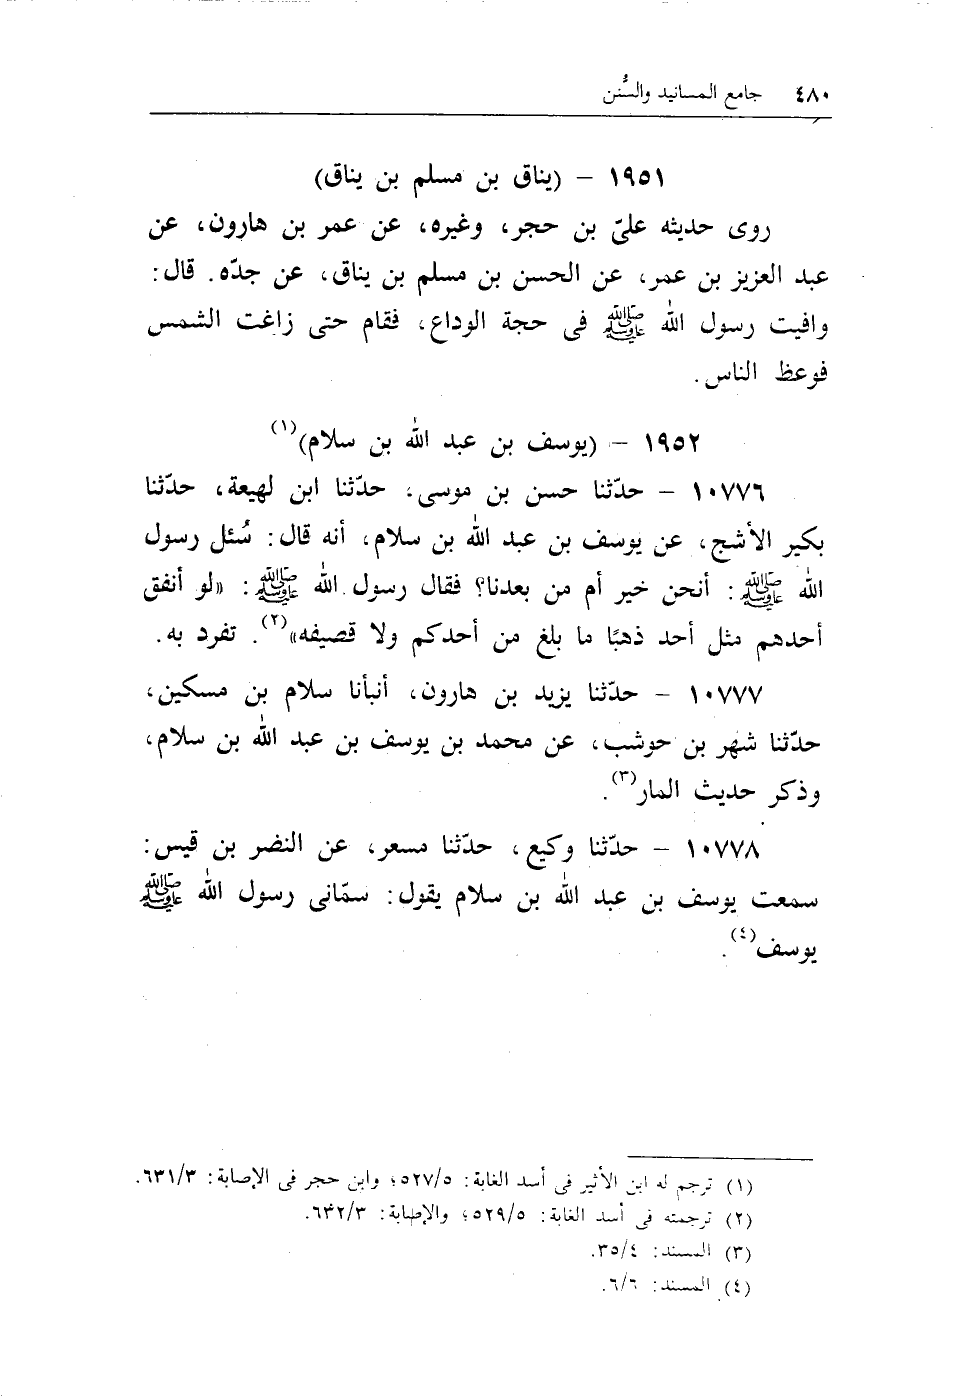 ٤٨٠ جامع المسانيد والسُّنن
١٩٥١ - (يناق بن مسلم بن يناق)
روى حديثه علىّ بن حجر، وغيره، عن عمر بن هارون، عن
عبد العزيز بن عمر، عن الحسن بن مسلم بن يناق، عن جدّه. قال:
وافيت رسول الله ﷺ فى حجة الوداع، فقام حتى زاغت الشمس
فوعظ الناس.
١٩٥٢ - (يوسف بن عبد الله بن سلام)(١)
١٠٧٧٦ - حدّثنا حسن بن موسى، حدّثنا ابن لهيعة، حدّثنا
بكير الأشج، عن يوسف بن عبد الله بن سلام، أنه قال: سُئل رسول
الله ﷺ: أنحن خير أم من بعدنا؟ فقال رسول الله ﷺ: «لو أنفق
أحدهم مثل أحد ذهبًا ما بلغ من أحدكم ولا قصيفه»(٢). تفرد به.
١٠٧٧٧ - حدّثنا يزيد بن هارون، أنبأنا سلام بن مسكين،
حدّثنا شهر بن حوشب، عن محمد بن يوسف بن عبد الله بن سلام،
وذكر حديث المار(٣).
١٠٧٧٨ - حدّثنا وكيع، حدّثنا مسعر، عن النضر بن قيس:
سمعت يوسف بن عبد الله بن سلام يقول: سمّانى رسول الله ﷺ
يوسف(٤).
(١) ترجم له ابن الأثير فى أسد الغابة: ٥/٥٢٧؛ وابن حجر فى الإصابة: ٣/٦٣١.
(٢) ترجمته فى أسد الغابة: ٥/٥٢٩؛ والإصابة: ٣/٦٣٢.
(٣) المسند: ٤/٣٥.
(٤) المسند: ٦/٦.